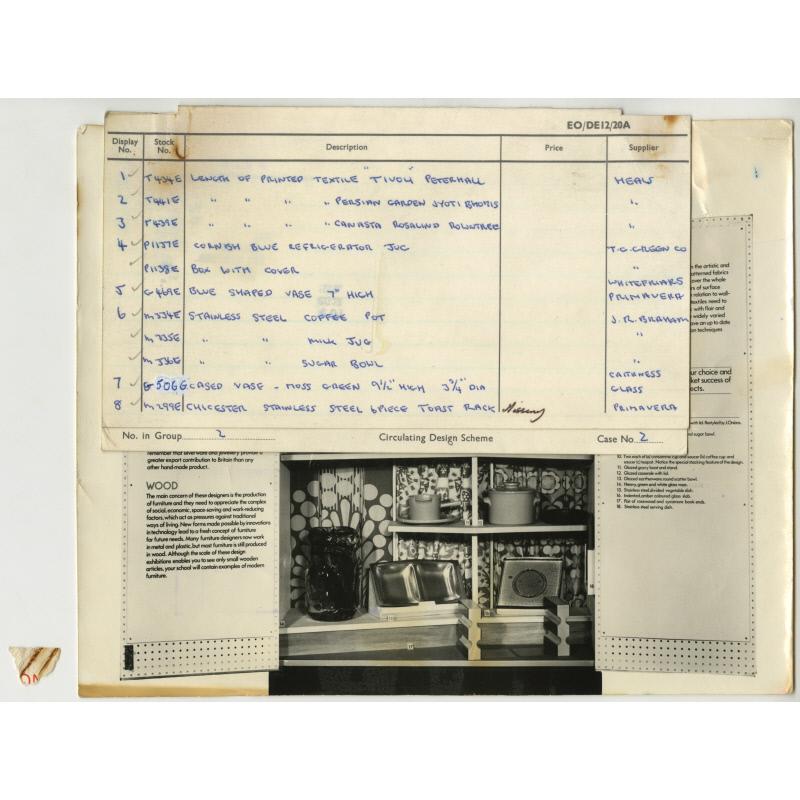 EO/DE12/20A
Display No. Stock No. Description Price Supplier
1 T434E LENGTH OF PRINTED TEXTILE "TIVOLI" PETERHALL HEALS
2 T441E " " " " PERSIAN GARDEN JYOTI BHOMIS "
3 T439E " " " " CANASTA ROSALIND ROWNTREE "
4 P1137E CORNISH BLUE REFRIGERATOR JUG T.G. GREEN CO
P1138E BOX WITH COVER "
WHITEFRIARS
5 G469E BLUE SHAPED VASE 7" HIGH PRIMAVERA
6 M334E STAINLESS STEEL COFFEE POT J.R. BRAHAM
M335E " " MILK JUG "
M336E " " SUGAR BOWL "
7 G506G CASED VASE - MOSS GREEN 9½" HIGH 3¾" DIA CAITHNESS GLASS
8 M299E CHICESTER STAINLESS STEEL 6 PIECE TOAST RACK Missing PRIMAVERA
No. in Group 2 Circulating Design Scheme Case No. 2
remember that silverware and jewellery provide a
greater export contribution to Britain than any
other hand-made product.
WOOD
The main concern of these designers is the production
of furniture and they need to appreciate the complex
of social, economic, space-saving and work-reducing
factors, which act as pressures against traditional
ways of living. New forms made possible by innovations
in technology lead to a fresh concept of furniture
for future needs. Many furniture designers now work
in metal and plastic, but most furniture is still produced
in wood. Although the scale of these design
exhibitions enables you to see only small wooden
articles, your school will contain examples of modern
furniture.
the artistic and
patterned fabrics
over the whole
rs of surface
relation to wall-
textiles need to
with flair and
widely varied
ave an up to date
on techniques
our choice and
ket success of
ects.
with lid. Restyled by J. Onions.
sugar bowl.
saucer (c) teapot. Notice the special stacking feature of the design.
11. Glazed gravy boat and stand.
12. Glazed casserole with lid.
13. Glazed earthenware round scatter bowl.
14. Heavy, green and white glass vase.
15. Stainless steel divided vegetable dish.
16. Indented amber coloured glass slab.
17. Pair of rosewood and sycamore book ends.
18. Stainless steel serving dish.